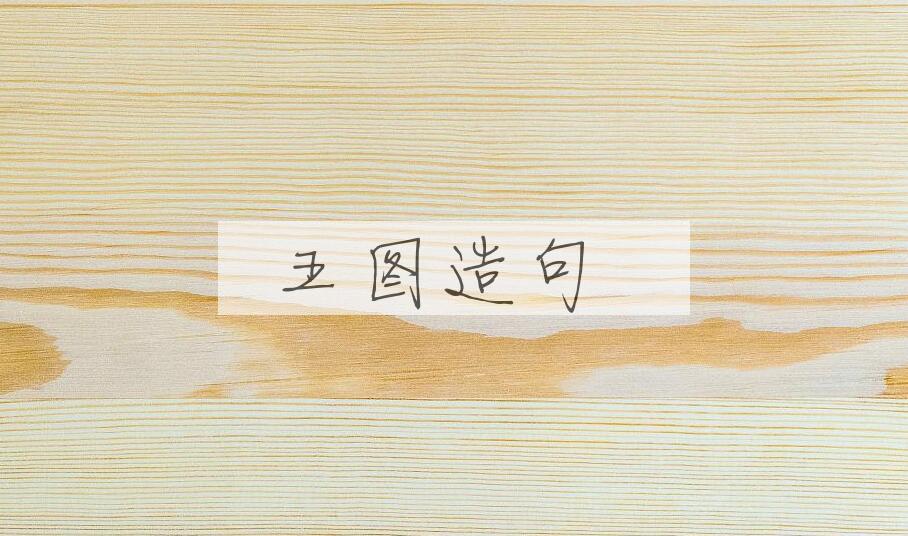 王图造句